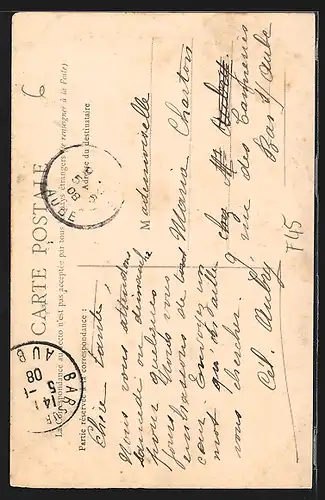 CARTE POSTALE
La correspondance au recto n'est pas acceptée par tous pays étrangers (se renseigner à la Poste)
Partie réservée à la correspondance:
Adresse du destinataire
Chère tante,
Nous vous attendons
samedi ou dimanche
pour quelques
jours. Nous vous
embrassons de tout
cœur. Envoyez un
mot qu'on aille
vous chercher.
Mademoiselle
Maria Charton
chez Mme
9 rue des Tanneries
Bar s/ Aube
6
F15
BAR
AUB
14
5
08